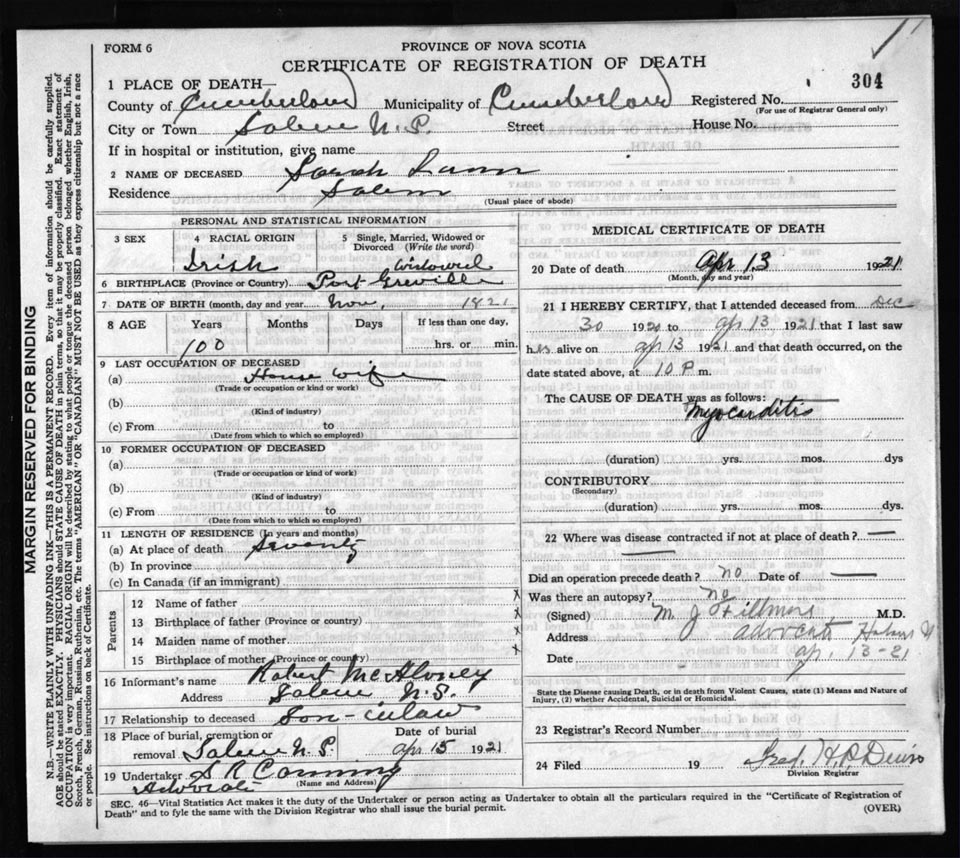 FORM 6
PROVINCE OF NOVA SCOTIA
CERTIFICATE OF REGISTRATION OF DEATH
304
1 PLACE OF DEATH
County of Cumberland Municipality of Cumberland Registered No.
(For use of Registrar General only)
City or Town Salem N.S. Street House No.
If in hospital or institution, give name
2 NAME OF DECEASED Sarah
Residence Salem
(Usual place of abode)
PERSONAL AND STATISTICAL INFORMATION
3 SEX
4 RACIAL ORIGIN
Irish
5 Single, Married, Widowed or Divorced (Write the word)
Widowed
6 BIRTHPLACE (Province or Country) Port Greville
7 DATE OF BIRTH (month, day and year Nov, 1821
8 AGE Years Months Days If less than one day,
100 hrs. or min.
9 LAST OCCUPATION OF DECEASED
(a) House Wife
(Trade or occupation or kind or work)
(b)
(Kind of industry)
(c) From to
(Date from which to which so employed)
10 FORMER OCCUPATION OF DECEASED
(a)
(Trade or occupation or kind of work)
(b)
(Kind of industry)
(c) From to
(Date from which to which so employed)
11 LENGTH OF RESIDENCE (In years and months)
(a) At place of death Seventy
(b) In province
(c) In Canada (if an immigrant)
Parents
12 Name of father x
13 Birthplace of father (Province or country) x
14 Maiden name of mother x
15 Birthplace of mother (Province or country) x
16 Informant's name Robert McAloney
Address Salem N.S.
17 Relationship to deceased Son-inlaw
18 Place of burial, cremation or removal Salem N.S. Date of burial apr 15 1921
19 Undertaker S R
(Name and Address)
Advocate
MEDICAL CERTIFICATE OF DEATH
20 Date of death Apr 13 1921
(Month, day and year)
21 I HEREBY CERTIFY, that I attended deceased from Dec
30 1920 to apr 13 1921 that I last saw
her alive on apr 13 1921 and that death occurred, on the
date stated above, at 10 P. m.
The CAUSE OF DEATH was as follows:
Myocarditis
(duration) yrs. mos. dys
CONTRIBUTORY
(Secondary)
(duration) yrs. mos. dys.
22 Where was disease contracted if not at place of death?
Did an operation precede death? no Date of
Was there an autopsy? no
(Signed) M. J. Fillmore M.D.
Address advocate
Date ap. 13-21
State the Disease causing Death, or in death from Violent Causes, state (1) Means and Nature of
Injury, (2) whether Accidental, Suicidal or Homicidal.
23 Registrar's Record Number
24 Filed 19 Fred. H.
Division Registrar
SEC. 46—Vital Statistics Act makes it the duty of the Undertaker or person acting as Undertaker to obtain all the particulars required in the "Certificate of Registration of
Death" and to fyle the same with the Division Registrar who shall issue the burial permit. (OVER)
MARGIN RESERVED FOR BINDING
N.B.—WRITE PLAINLY WITH UNFADING INK—THIS IS A PERMANENT RECORD. Every item of information should be carefully supplied.
AGE should be stated EXACTLY. PHYSICIANS should STATE CAUSE OF DEATH in plain terms, so that it may be properly classified. Exact statement of
OCCUPATION is very important. RACIAL ORIGIN will be described by stating to what people or tongue the deceased person belonged, whether English, Irish,
Scotch, French, German, Russian, Ruthenian, etc. The terms "AMERICAN" OR "CANADIAN" MUST NOT BE USED as they express citizenship but not a race
or people. See instructions on back of Certificate.